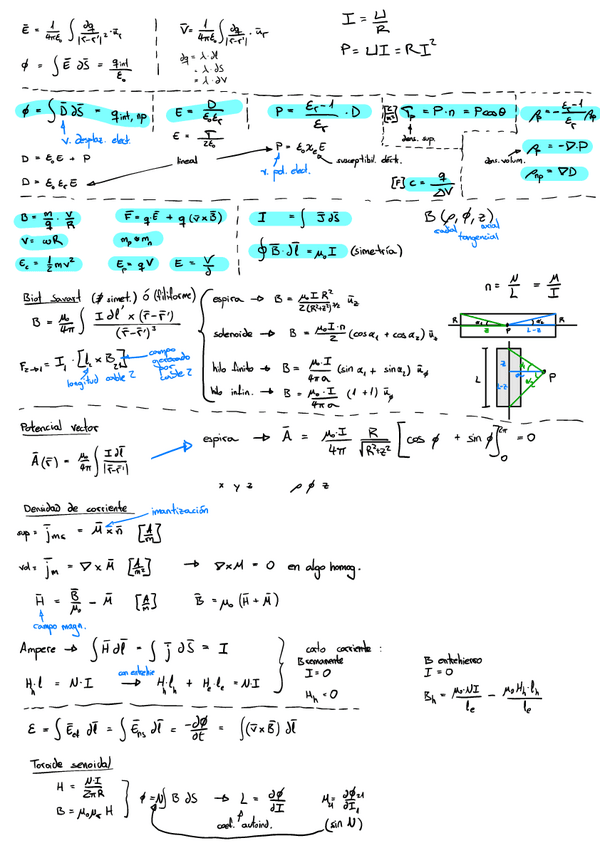 Ē = 1/4πε₀ ∫ ∂q/|r̄-r̄'|² · ūᵣ
V̄ = 1/4πε₀ ∫ ∂q/|r̄-r̄'| · ūᵣ
I = U/R
P = UI = RI²
∂q = λ·∂l
= λ·∂S
= λ·∂V
ϕ = ∫ Ē ∂S̄ = q int/ε₀
ϕ = ∫ D̄ ∂S̄ = q int, np
v. desplaz. elect.
D = ε₀E + P
D = ε₀ εᵣ E
E = D/ε₀εᵣ
E = σ/2ε₀
lineal
P = εᵣ-1/εᵣ · D
P = ε₀ χₑ E
v. pol. elect.
susceptibil. eléct.
σₚ = P·n = P cos θ
dens. sup.
[F] C = q/ΔV
dens. volum.
ρₚ = -εᵣ-1/εᵣ ρnp
ρₚ = -∇·P
ρnp = ∇D
B = m/q · V/R
V = ωR
εc = 1/2 mv²
F̄ = q·Ē + q(v̄×B̄)
mp ≈ mn
Eₚ = qV
E = V/d
I = ∫ J̄ ∂S̄
∮ B̄·∂l̄ = μ₀I (simetría)
B(ρ, ϕ, z)
radial
axial
tangencial
n = N/L = M/I
Biot Savart (∄ simet.) ó (filiforme)
B = μ₀/4π ∫ I ∂l' × (r̄-r̄')/(r̄-r̄')³
F₂→₁ = I₁ · [l₁ × B₂]
longitud cable 2
campo generado por cable 2
espira → B = μ₀IR²/2(R²+z²)³/² ū_z
solenoide → B = μ₀I·n/2 (cos α₁ + cos α₂) ū_z
hilo finito → B = μ₀·I/4πa (sin α₁ + sin α₂) ūϕ
hilo infin. → B = μ₀·I/4πa (1+1) ūϕ
R
α₁
z
P
α₂
L-z
R
L
P
Potencial vector
Ā(r̄) = μ₀/4π ∫ I ∂l̄/|r̄-r̄'|
espira → Ā = μ₀·I/4π R/√R²+z² [cos ϕ + sin ϕ]₀²π = 0
x y z ρ ϕ z
Densidad de corriente
imantización
sup = j̄ms = M̄ × n̄ [A/m]
vol = j̄m = ∇ × M̄ [A/m²] → ∇×M = 0 en algo homog.
H̄ = B̄/μ₀ - M̄ [A/m] B̄ = μ₀ (H̄ + M̄)
campo magn.
Ampere → ∫ H̄ ∂l̄ = ∫ j̄ ∂S̄ = I
Hₕ·l = N·I
con entrehie
Hₕ·lₕ + Hₑ·lₑ = N·I
corto corriente :
B remanente
I = 0
Hₕ = 0
B entrehierro
I = 0
Bₕ = μ₀·NI/lₑ - μ₀Hₕ·lₕ/lₑ
ε = ∫ Ēef ∂l̄ = ∫ Ēns ∂l̄ = -∂ϕ/∂t = ∫(v̄×B̄) ∂l̄
Toroide senoidal
H = N·I/2πR
B = μ₀μᵣ H
ϕ = N∫ B ∂S → L = ∂ϕ/∂I
coef. autoind.
(sin N)